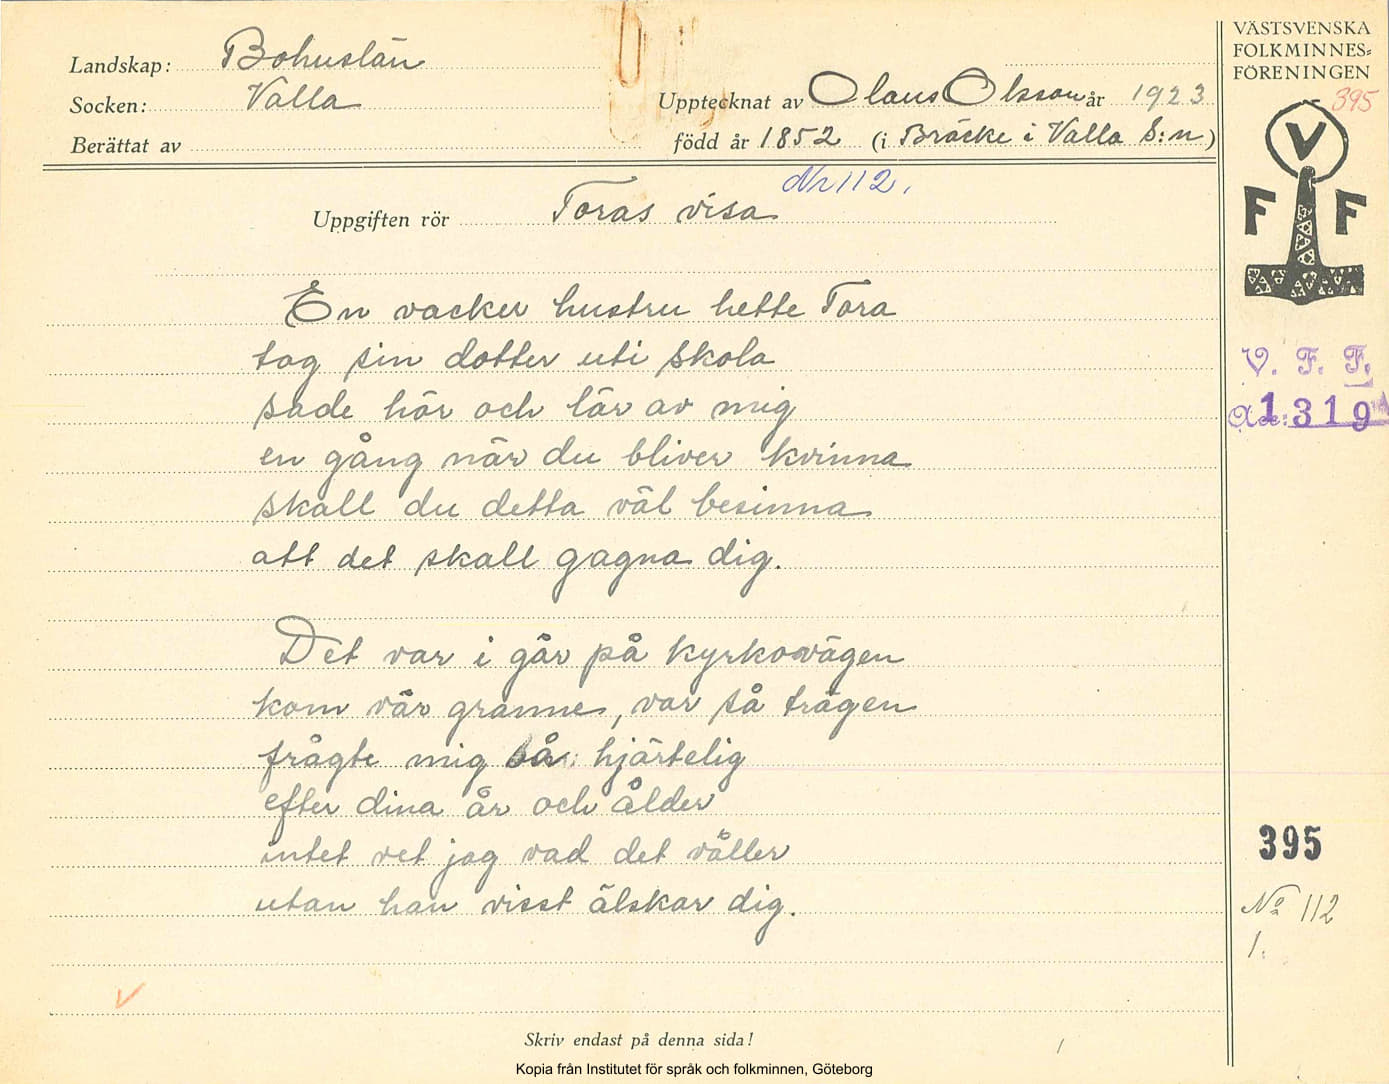 Landskap: Bohuslän
Socken: Valla
Berättat av
Upptecknat av Olaus Olsson år 1923
född år 1852 (i Bräcke i Valla S:n)
Nr 112.
Uppgiften rör Toras visa
En vacker hustru hette Tora
tog sin dotter uti skola
sade hör och lär av mig
en gång när du bliver kvinna
skall du detta väl besinna
att det skall gagna dig.
Det var i går på kyrkovägen
kom vår granne, var så trägen
frågte mig så hjärtelig
efter dina år och ålder
intet vet jag vad det våller
utan han visst älskar dig.
Skriv endast på denna sida!
Kopia från Institutet för språk och folkminnen, Göteborg
VÄSTSVENSKA
FOLKMINNES-
FÖRENINGEN
395
V
F F
V. F. F.
1319
395
No 112
1.